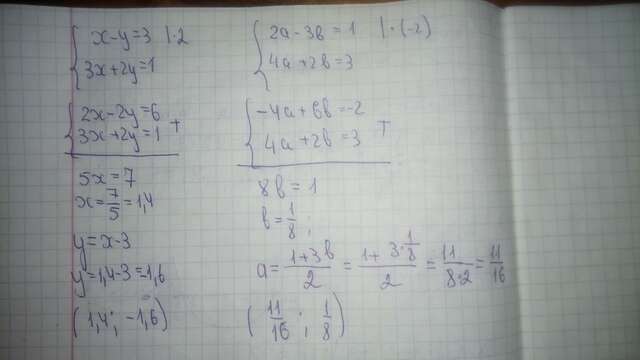 x-y=3 |·2
3x+2y=1
2x-2y=6
3x+2y=1 +
5x=7
x=7/5=1,4
y=x-3
y=1,4-3=-1,6
(1,4; -1,6)
2a-3b=1 |·(-2)
4a+2b=3
-4a+6b=-2
4a+2b=3 +
8b=1
b=1/8;
a=(1+3b)/2=(1+3·1/8)/2=11/(8·2)=11/16
(11/16; 1/8)